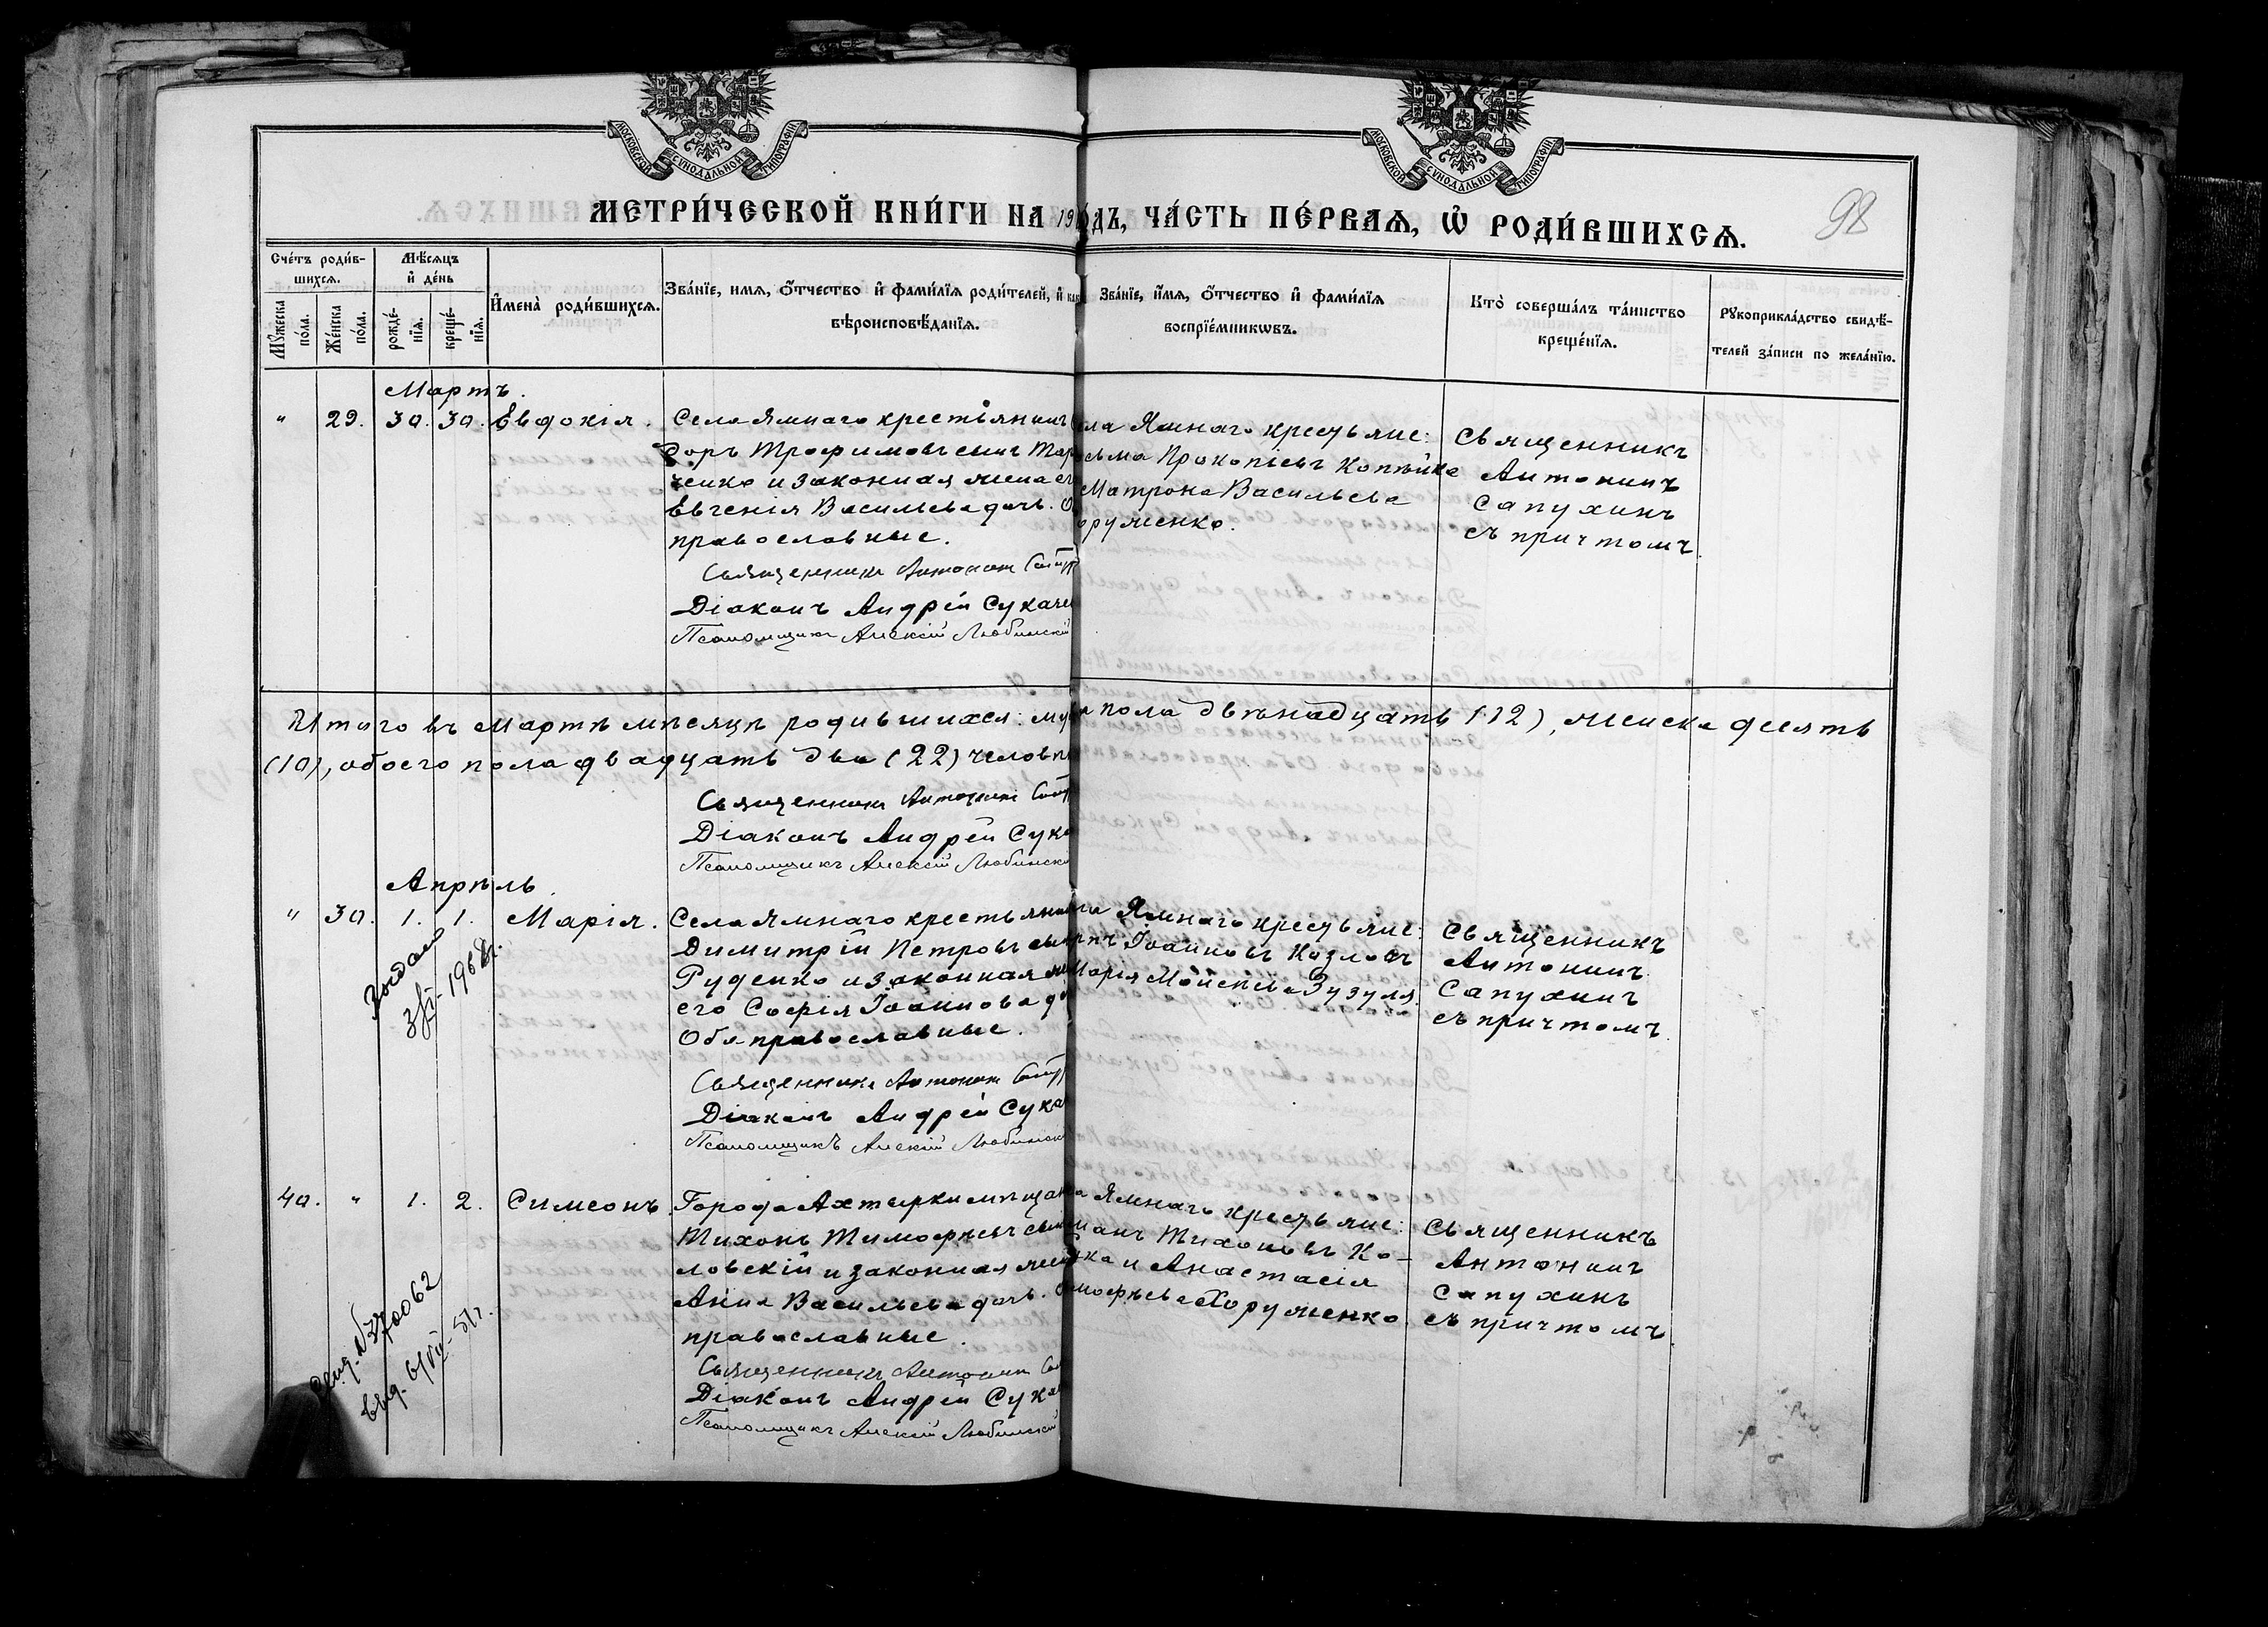 МОСКОВСКОЙ СѴНОДАЛЬНОЙ ТИПОГРАФІИ
МОСКОВСКОЙ СѴНОДАЛЬНОЙ ТИПОГРАФІИ
98
МЕТРИ́ЧЕСКОЙ КНИ́ГИ НА 19 ГО́ДЪ, ЧА́СТЬ ПЕ́РВАѦ, Ѡ҆ РОДИ́ВШИХСѦ.
Сче́тъ роди́в-
шихсѧ.
Мꙋ́жеска по́ла.
Же́нска по́ла.
Мѣ́сѧцъ
и҆ де́нь
рожде́-
нїѧ.
креще́-
нїѧ.
И҆мена̀ роди́вшихсѧ.
Зва́нїе, имѧ, ѻ҆́тчество и҆ фами́лїѧ роди́телей, и҆
вѣроисповѣ́данїѧ.
Зва́нїе, и҆́мѧ, ѻ҆́тчество и҆ фами́лїѧ
воспрїе́мникѡвъ.
Кто̀ соверша́лъ та́инство
креще́нїѧ.
Рꙋкоприкла́дство свидѣ́-
телей за́писи по жела́нїю.
Мартъ.
" 29. 30. 30. Евдокія.
Села Ямнаго крестьянинъ
Трофимовъ сынъ
и законная жена его
Евгенія Васильева дочь.
православные.
Священникъ Антонинъ
Діаконъ Андрей
Псаломщикъ Алексій Любинскій
Ямнаго крестьяне:
Прокопіевъ Копѣйка
Матрона Васильева
Священникъ
Антонинъ
Сапухинъ
съ причтомъ.
Итого въ мартѣ мѣсяцѣ родившихся: пола двѣнадцать (12), женска десять
(10), обоего пола двадцать два (22)
Священникъ Антонинъ
Діаконъ Андрей
Псаломщикъ Алексій Любинскій
Апрѣль.
" 30. 1. 1. Марія.
Села Ямнаго крестьянинъ
Димитрій Петровъ сынъ
Руденко и законная
его Софія Іоаннова
Оба православные.
Священникъ Антонинъ
Діаконъ Андрей
Псаломщикъ Алексій
Ямнаго крестьяне:
Іоанновъ Козловъ
Марія Моисѣева Зузуля.
Священникъ
Антонинъ
Сапухинъ
съ причтомъ.
40. " 1. 2. Симеонъ.
Города Ахтырки мѣщанинъ
Тихонъ Тимофѣевъ сынъ
ловскій и законная
Анна Васильева дочь.
православные.
Священникъ Антонинъ
Діаконъ Андрей
Псаломщикъ Алексій Любинскій
Ямнаго крестьяне:
Тихоновъ Ко-
и Анастасія
Хоруженко.
Священникъ
Антонинъ
Сапухинъ
съ причтомъ.